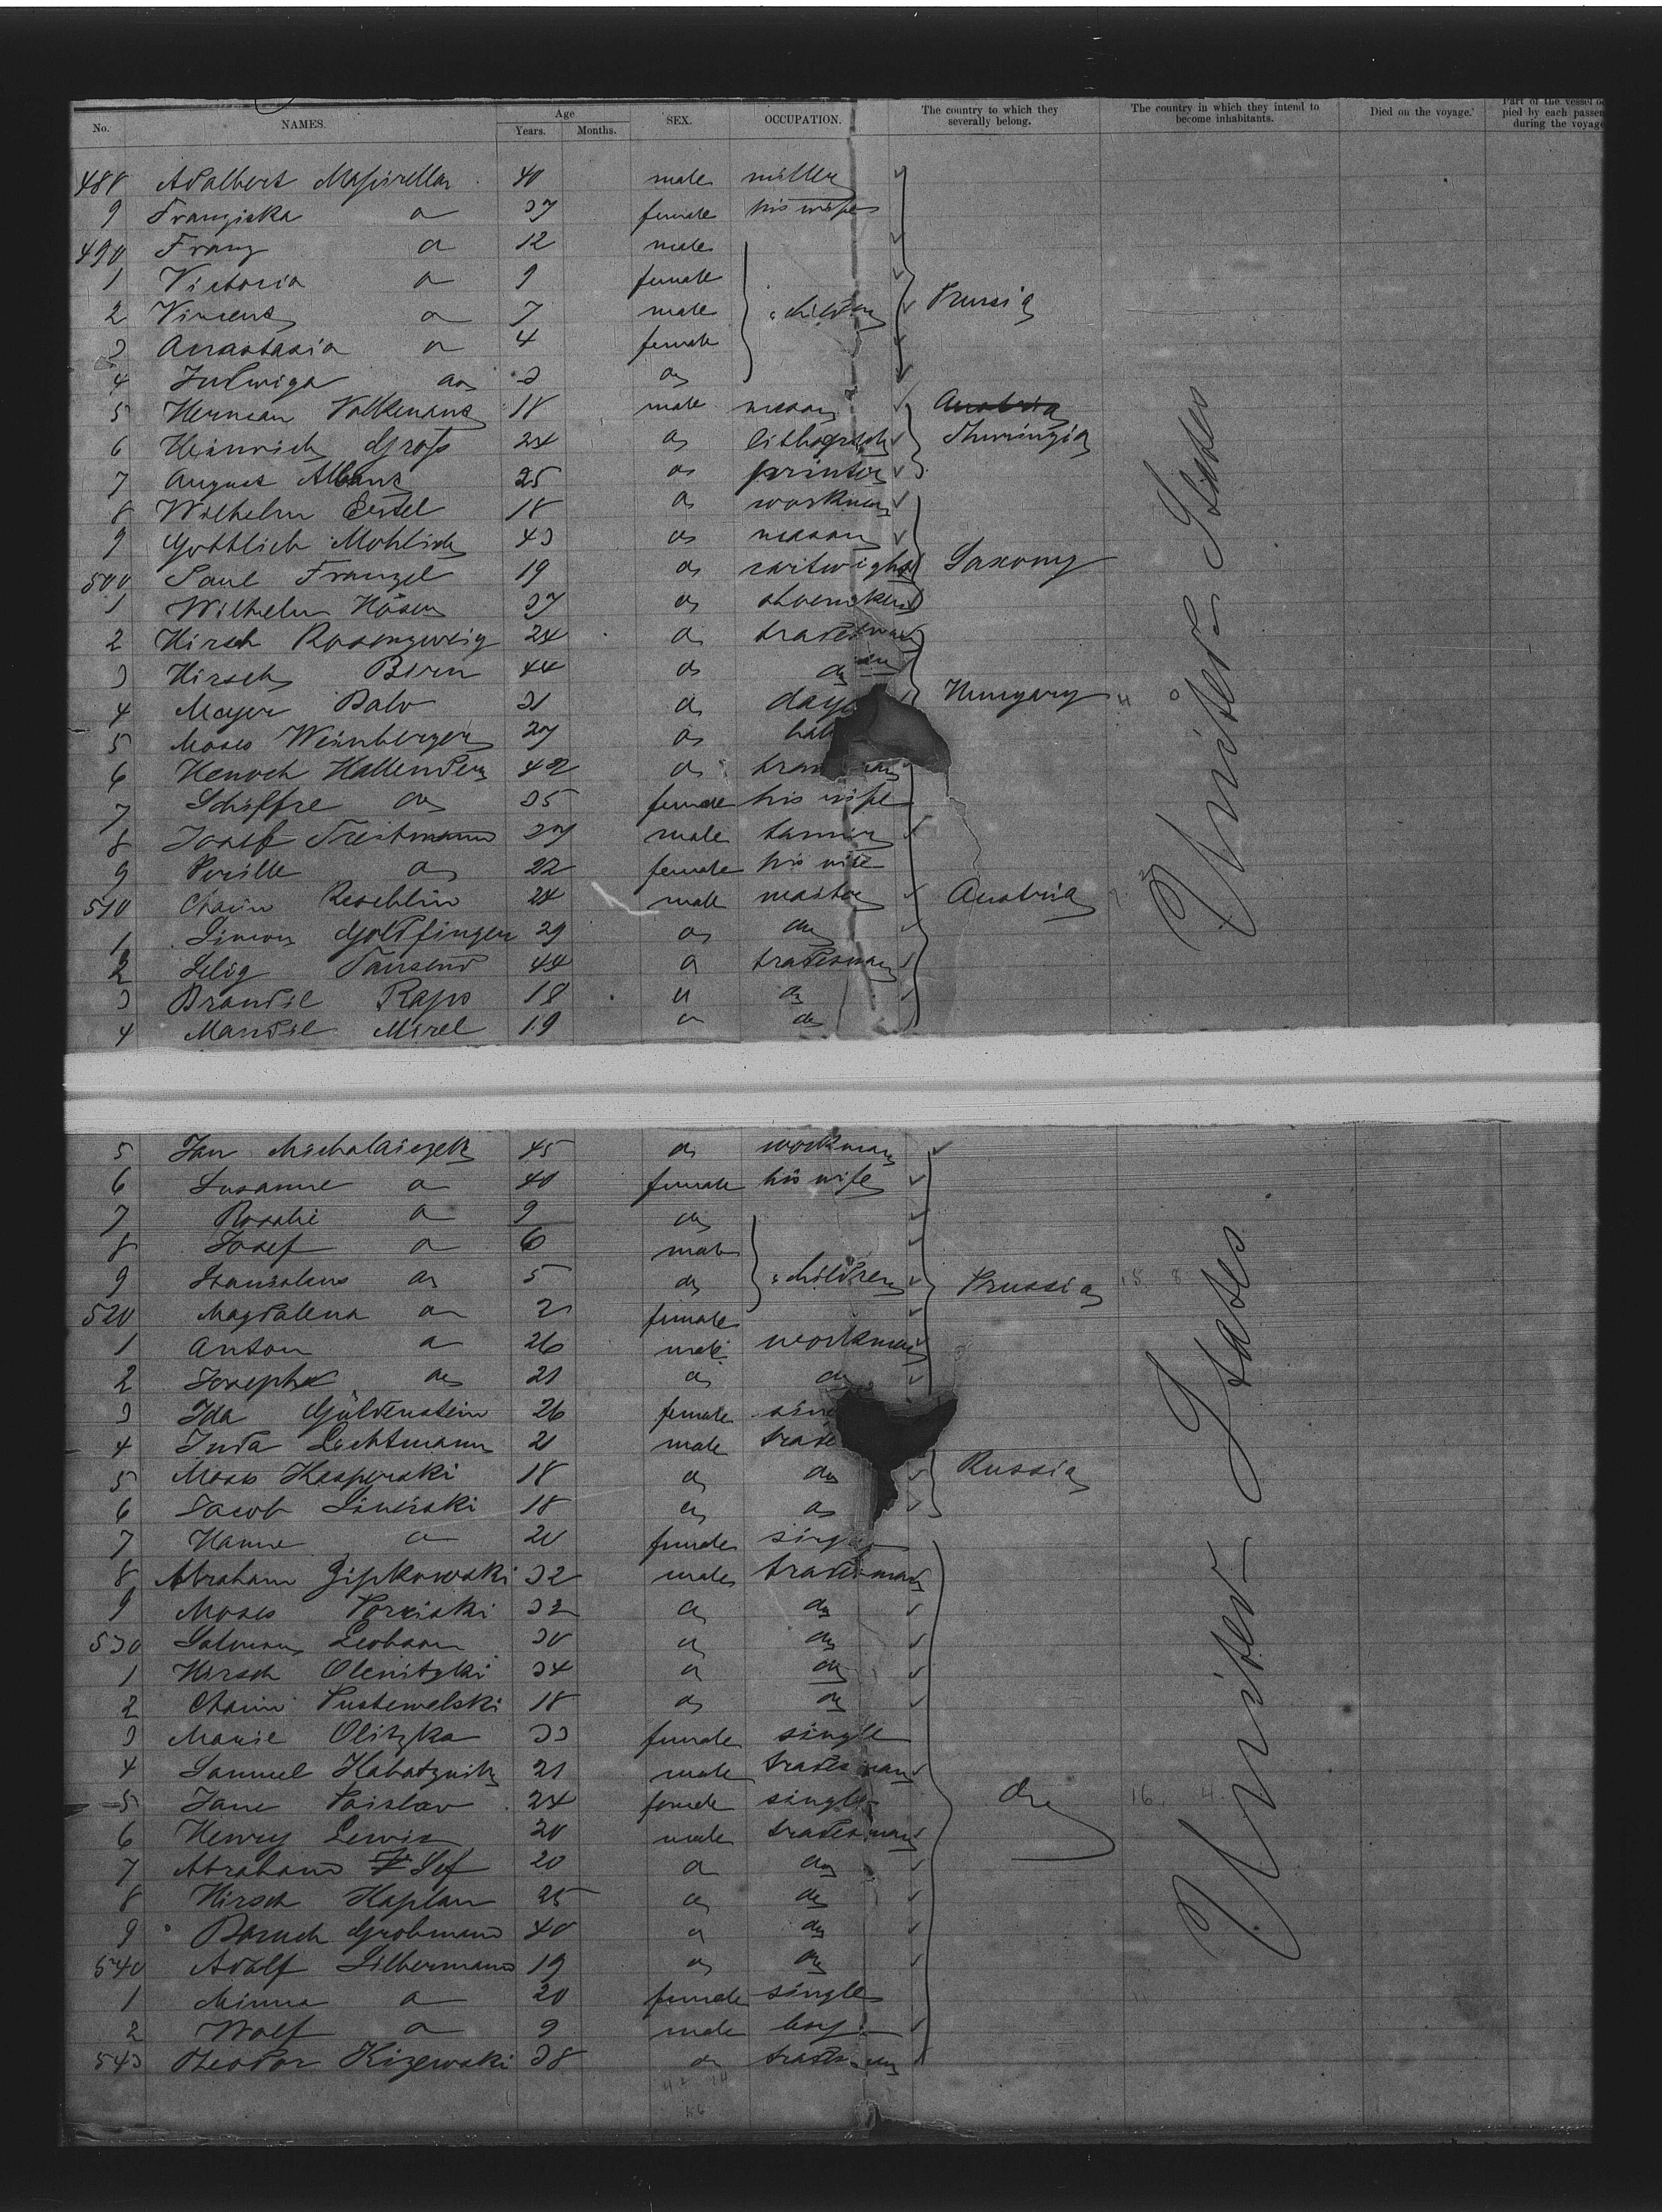 No. NAMES. Age Years. Months. SEX. OCCUPATION. The country to which they severally belong. The country in which they intend to become inhabitants. Died on the voyage. Part of the vessel oc pied by each passen during the voyage
488 Adalbert 40 male miller
9 Franziska do 37 female his wife
490 Franz do 12 male
1 Victoria do 9 female
2 Vincent do 7 male children Prussia
3 Anastasia do 4 female
4 Judwiga do 3 do
5 Herman Volkenant 18 male mason Austria
6 Heinrich Gross 24 do lithograph Thuringia
7 August Albans 25 do printer
8 Wilhelm Ertel 18 do workman
9 Gottlieb Mohlich 43 do mason
500 Paul Franzel 19 do Saxony
1 Wilhelm Hösen 37 do shoemaker
2 Hirsch Rosenzweig 24 do tradesman
3 Hirsch Bern 44 do do
4 Mayer Balv 21 do day Hungary
5 Moses Weinberger 27 do
6 Henoch Hallender 42 do
7 Scheffre do 35 female his wife
8 Josef Treitmann 27 male tanner
9 do 22 female his wife
510 Chaim Reschlin 24 male Austria
1 Simon Goldfinger 29 do do
2 Selig Tausend 44 do tradesman
3 Brandel Raps 18 do do
4 Mandel Mirel 19 do do
United States
5 Jan Michalaiczek 45 do workman
6 Susanne do 40 female his wife
7 Rosalie do 9 do
8 Josef do 6 male
9 Stanislaus do 5 do children Prussia
520 Magdalena do 2 female
1 Anton do 26 male workman
2 Josepha do 21 do do
3 Ida Güldenstein 26 female
4 Juda Lichtmann 21 male
5 Moses Kasperski 18 do do Russia
6 Jacob Linirski 18 do do
7 Hanne do 20 female
8 Abraham Zipkowski 32 male tradesman
9 Moses 32 do do
530 Salman Leobaum 30 do do
1 Hirsch Olenitzki 34 do do
2 Chaim Pustewelski 18 do do
3 Marie Olitzka 33 female single
4 Samuel Kabatznik 21 male tradesman
5 Jane Poislav 24 female single do
6 Henry Lewis 20 male tradesman
7 Abraham Lef 20 do do
8 Hirsch Kaplan 25 do do
9 Baruch Grobmann 40 do do
540 Adolf Silbermann 19 do do
1 Minna do 20 female single
2 Wolf do 9 male boy
543 Theodor Kizewski 38 do tradesman
United States